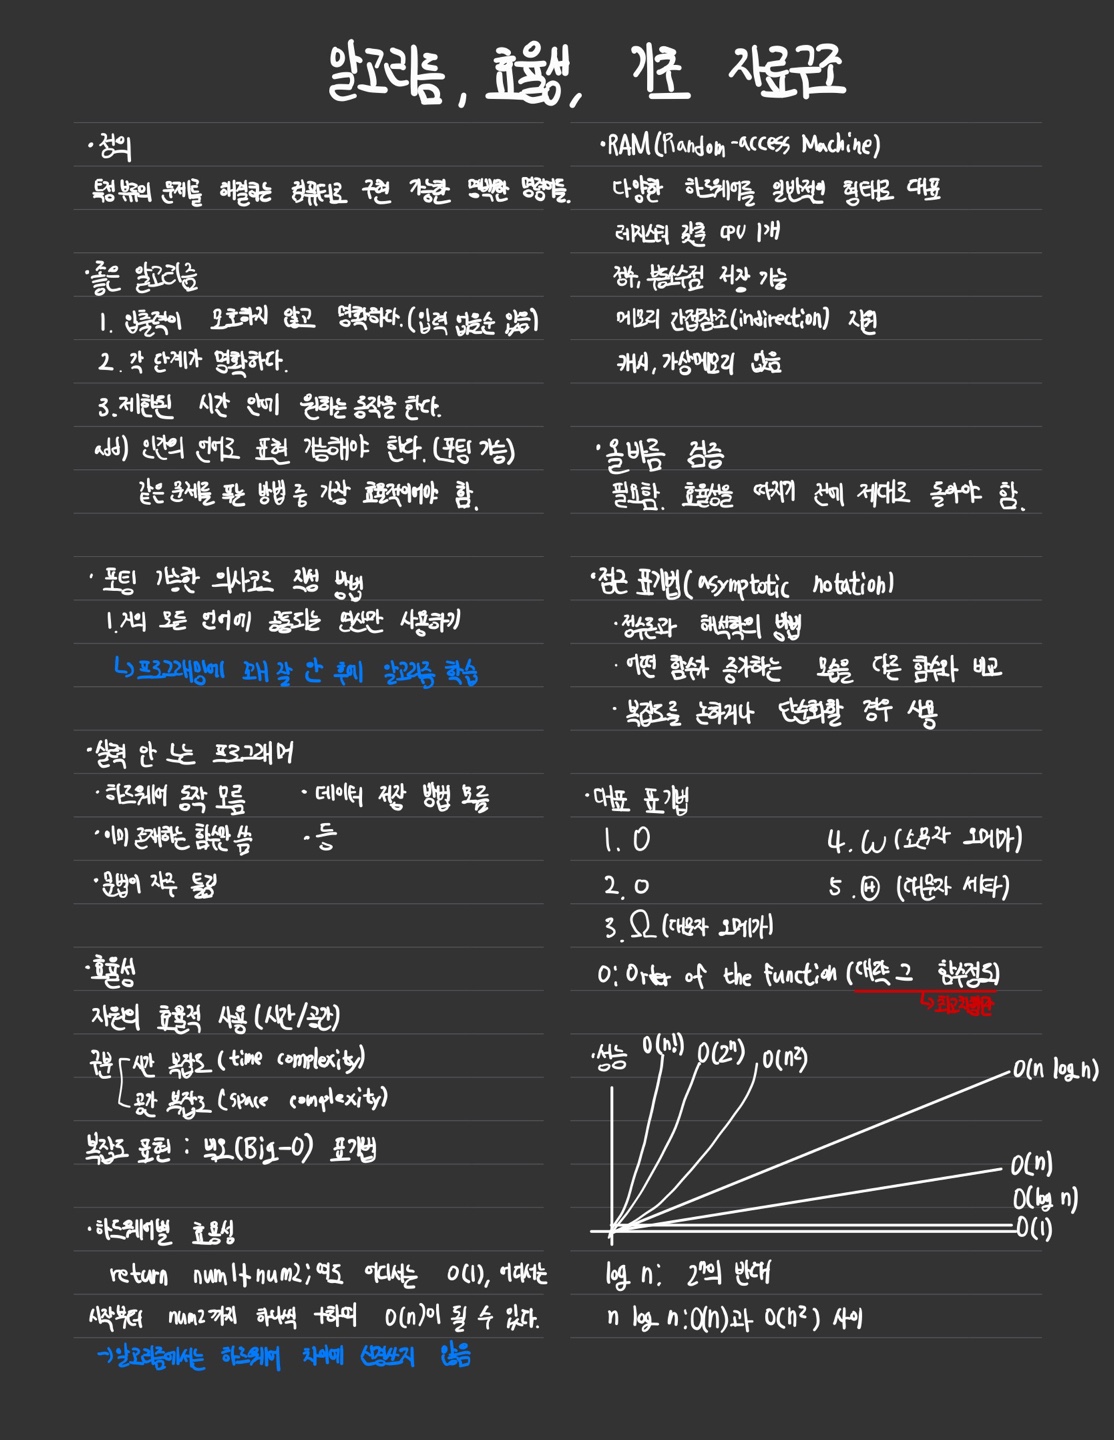 알고리즘, 효율성, 기초 자료구조
·정의
특정 부류의 문제를 해결하는 컴퓨터로 구현 가능한 명백한 명령어들.
·좋은 알고리즘
1. 입출력이 모호하지 않고 명확하다.(입력 없을순 있음)
2. 각 단계가 명확하다.
3. 제한된 시간 안에 원하는 동작을 한다.
add) 인간의 언어로 표현 가능해야 한다.(포팅 가능)
같은 문제를 푸는 방법 중 가장 효율적이어야 함.
· 포팅 가능한 의사코드 작성 방법
1. 거의 모든 언어에 공통되는 연산만 사용하기
↳ 프로그래밍에 꽤 잘 안 후에 알고리즘 학습
·실력 안 느는 프로그래머
·하드웨어 동작 모름 ·데이터 저장 방법 모름
·이미 존재하는 함수만 씀 ·등
·문법이 자주 틀림
·효율성
자원의 효율적 사용(시간/공간)
구분 시간 복잡도(time complexity)
공간 복잡도(space complexity)
복잡도 표현 : 빅오(Big-O) 표기법
·하드웨어별 효용성
return num1+num2;역도 어디서는 O(1), 어디서는
시작부터 num2까지 하나씩 +하며 O(n)이 될 수 있다.
→알고리즘에서는 하드웨어 차이에 신경쓰지 않음
·RAM(Random-access Machine)
다양한 하드웨어를 일반적인 형태로 대표
레지스터 갖춘 CPU 1개
정수, 부동소수점 저장 가능
메모리 간접참조(indirection) 지원
캐시, 가상메모리 없음
·올바름 검증
필요함. 효율성을 따지기 전에 제대로 돌아야 함.
·점근 표기법(asymptotic notation)
·정수론과 해석학의 방법
·어떤 함수가 증가하는 모습을 다른 함수와 비교
·복잡도를 논하거나 단순화할 경우 사용
·대표 표기법
1. O 4. ω(소문자 오메가)
2. o 5. Θ (대문자 세타)
3. Ω(대문자 오메가)
O: Order of the function (대략 그 함수정도)
↳최고차항만
·성능 O(n!) O(2ⁿ) O(n²)
O(n log n)
O(n)
O(log n)
O(1)
log n: 2ⁿ의 반대
n log n: O(n)과 O(n²) 사이